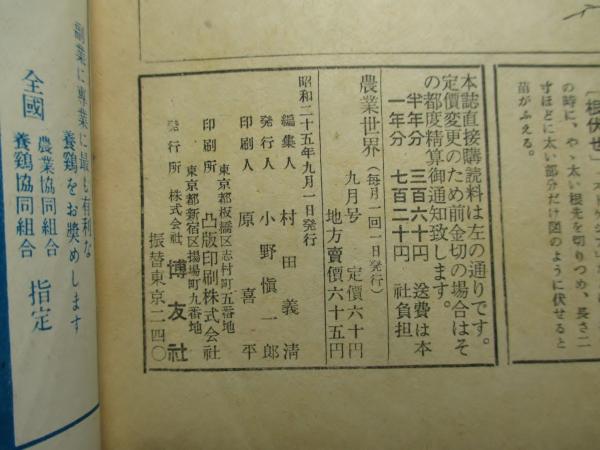 〔根伏せ〕
の時に、やゝ太い根先を切りつめ、長さ二
寸ほどに太い部分だけ図のように伏せると
苗がふえる。
本誌直接購読料は左の通りです。
定價変更のため前金切の場合はそ
の都度精算御通知致します。
半年分 三百六十円 送費は本
一年分 七百二十円 社負担
農業世界 九月号 定價六十円
(毎月一回一日発行) 地方賣價六十五円
昭和二十五年九月一日発行
編集人 村田義清
発行人 小野愼一郎
印刷人 原喜平
東京都板橋区志村町五番地
印刷所 凸版印刷株式会社
東京都新宿区揚場町九番地
発行所 株式会社 博友社
振替東京二四〇
副業に專業に最も有利な
養鶏をお奬めします
全國 農業協同組合 指定
養鶏協同組合